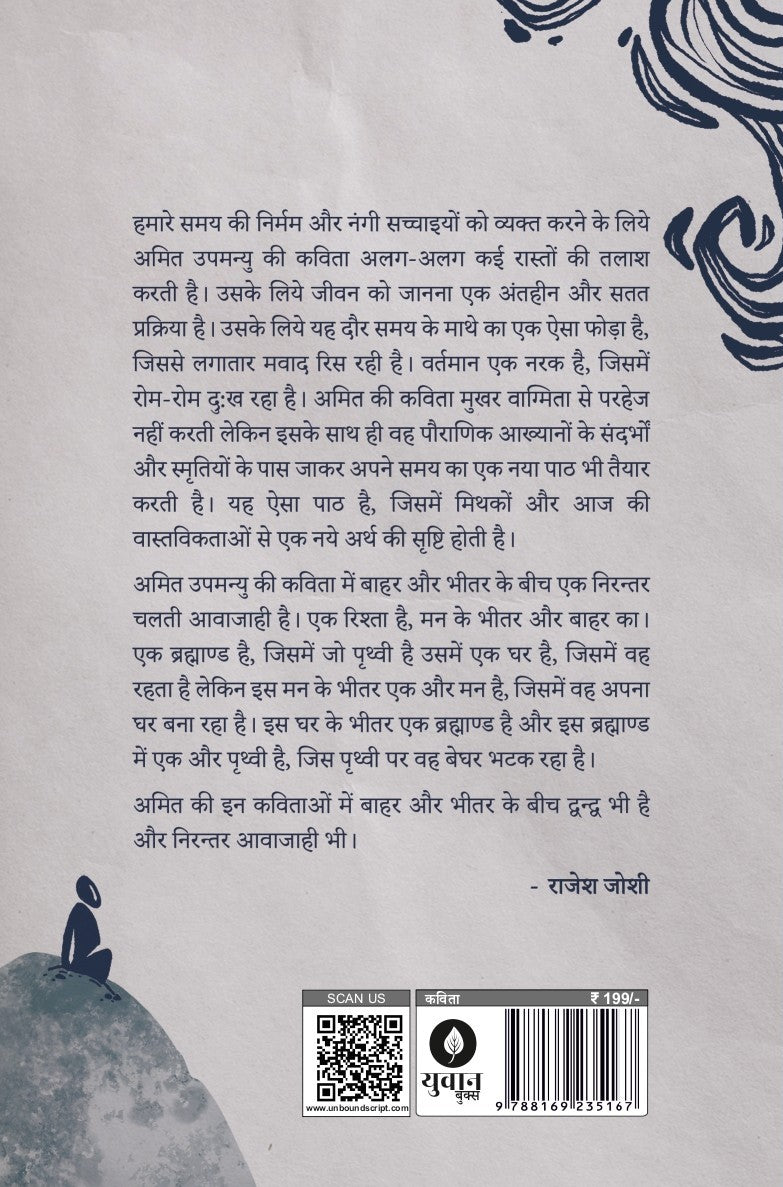 हमारे समय की निर्मम और नंगी सच्चाइयों को व्यक्त करने के लिये
अमित उपमन्यु की कविता अलग-अलग कई रास्तों की तलाश
करती है। उसके लिये जीवन को जानना एक अंतहीन और सतत
प्रक्रिया है। उसके लिये यह दौर समय के माथे का एक ऐसा फोड़ा है,
जिससे लगातार मवाद रिस रही है। वर्तमान एक नरक है, जिसमें
रोम-रोम दु:ख रहा है। अमित की कविता मुखर वाग्मिता से परहेज
नहीं करती लेकिन इसके साथ ही वह पौराणिक आख्यानों के संदर्भों
और स्मृतियों के पास जाकर अपने समय का एक नया पाठ भी तैयार
करती है। यह ऐसा पाठ है, जिसमें मिथकों और आज की
वास्तविकताओं से एक नये अर्थ की सृष्टि होती है।
अमित उपमन्यु की कविता में बाहर और भीतर के बीच एक निरन्तर
चलती आवाजाही है। एक रिश्ता है, मन के भीतर और बाहर का।
एक ब्रह्माण्ड है, जिसमें जो पृथ्वी है उसमें एक घर है, जिसमें वह
रहता है लेकिन इस मन के भीतर एक और मन है, जिसमें वह अपना
घर बना रहा है। इस घर के भीतर एक ब्रह्माण्ड है और इस ब्रह्माण्ड
में एक और पृथ्वी है, जिस पृथ्वी पर वह बेघर भटक रहा है।
अमित की इन कविताओं में बाहर और भीतर के बीच द्वन्द्व भी है
और निरन्तर आवाजाही भी।
- राजेश जोशी
SCAN US
www.unboundscript.com
कविता ₹ 199/-
युवान
बुक्स
9 788169 235167